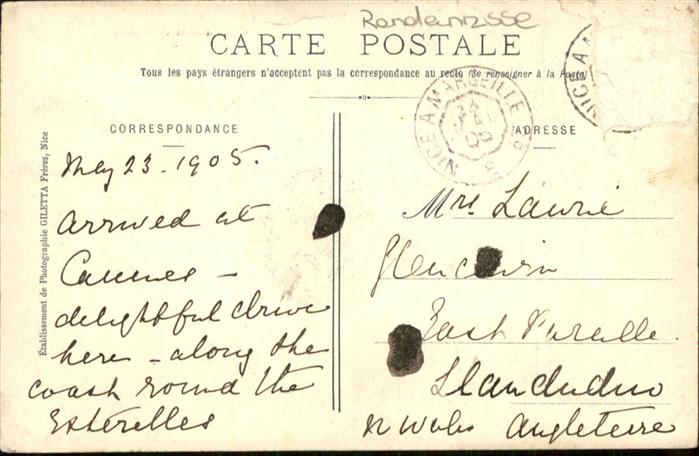 CARTE POSTALE
Tous les pays étrangers n'acceptent pas la correspondance au recto (Se renseigner à la Poste)
CORRESPONDANCE
ADRESSE
NICE A MARSEILLE
NICE A
Établissement de Photographie GILETTA Frères, Nice
May 23. 1905.
Arrived at
Cannes -
delightful drive
here - along the
coast round the
Estérelles
Mrs. Lawrie
East Parade.
Llandudno
N Wales Angleterre